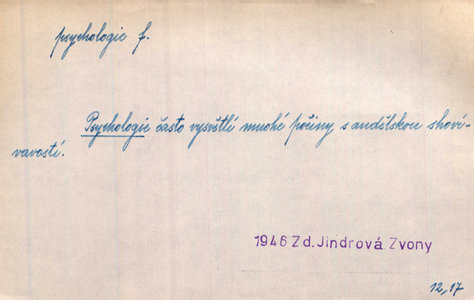 psychologie f.
Psychologie často vysvětlí mnohé počiny s andělskou shoví-
vavostí.
1946 Zd. Jindrová Zvony
12, 17